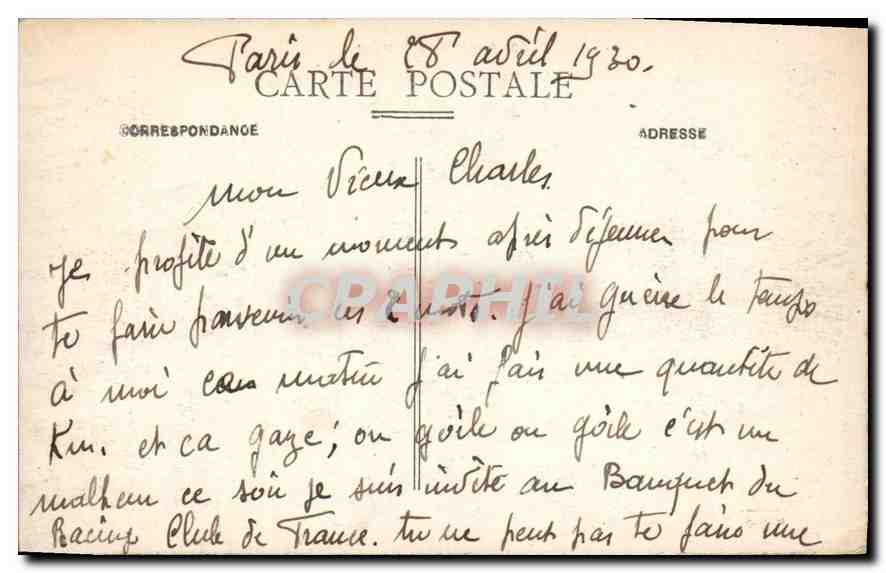 Paris le 28 avril 1930.
CARTE POSTALE
CORRESPONDANCE
ADRESSE
mon Vieux Charles
je profite d'un moment après déjeuner pour
te faire parvenir ces 2 mots. j'ai guère le temps
CPAPHIL
à moi ce matin j'ai fais une quantité de
Km. et ca gaze; on gôile on gôile c'est un
malheur ce soir je suis invité au Banquet du
Racing Club de France. tu ne peut pas te faire une